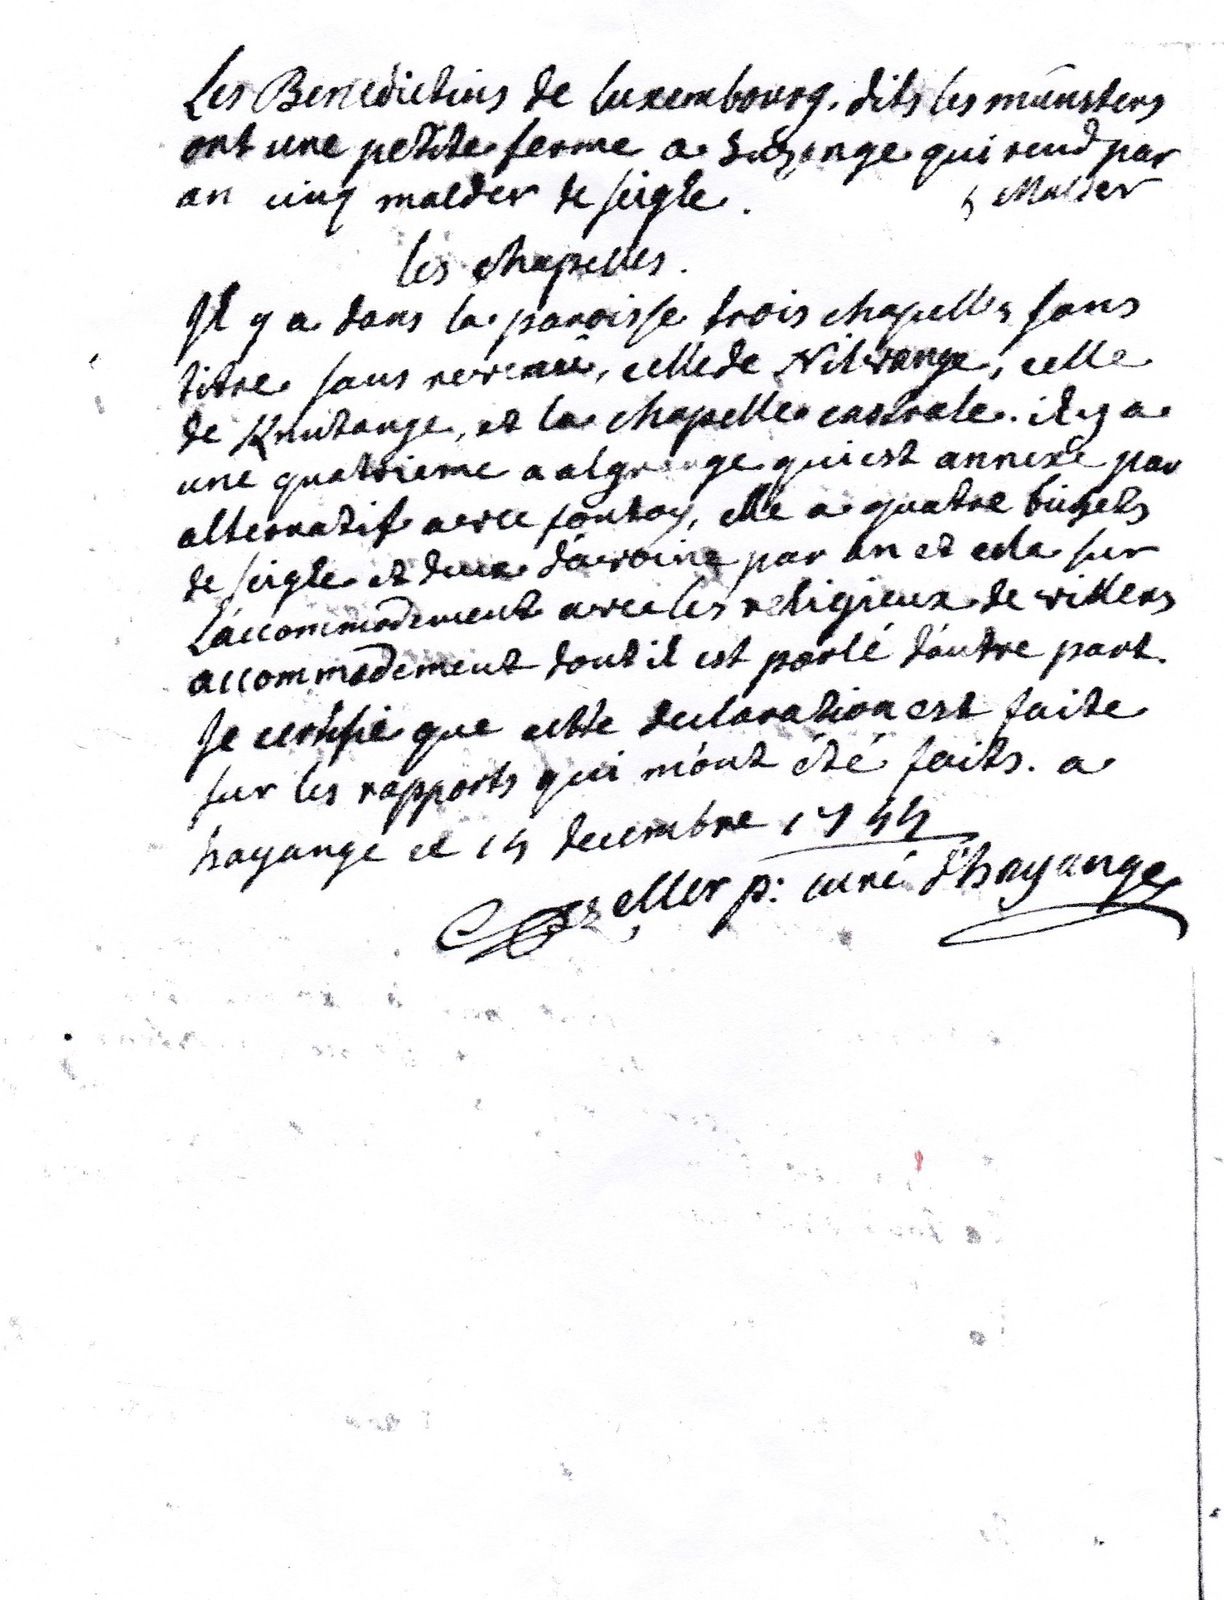 Les Benedictins de luxembourg. dits les münsters
ont une petite ferme a qui rend par
an cinq malder de seigle. 5 Malder
les chapelles.
Il y a dans la paroisse trois chapelles sans
titre sans revenu, celle de Nilvange, celle
de Knutange, et la chapelle castrale. il y a
une quatrieme a algrange qui est annexe par
alternatif avec fontoy, elle a quatre bichets
de seigle et deux d'avoine par an et cela sur
l'accommodement avec les religieux de villers
accommodement dont il est parlé d'autre part.
Je certifie que cette declaration est faite
sur les rapports qui m'ont été faits. a
hayange ce 14 decembre 1744
eller p: curé d'hayange